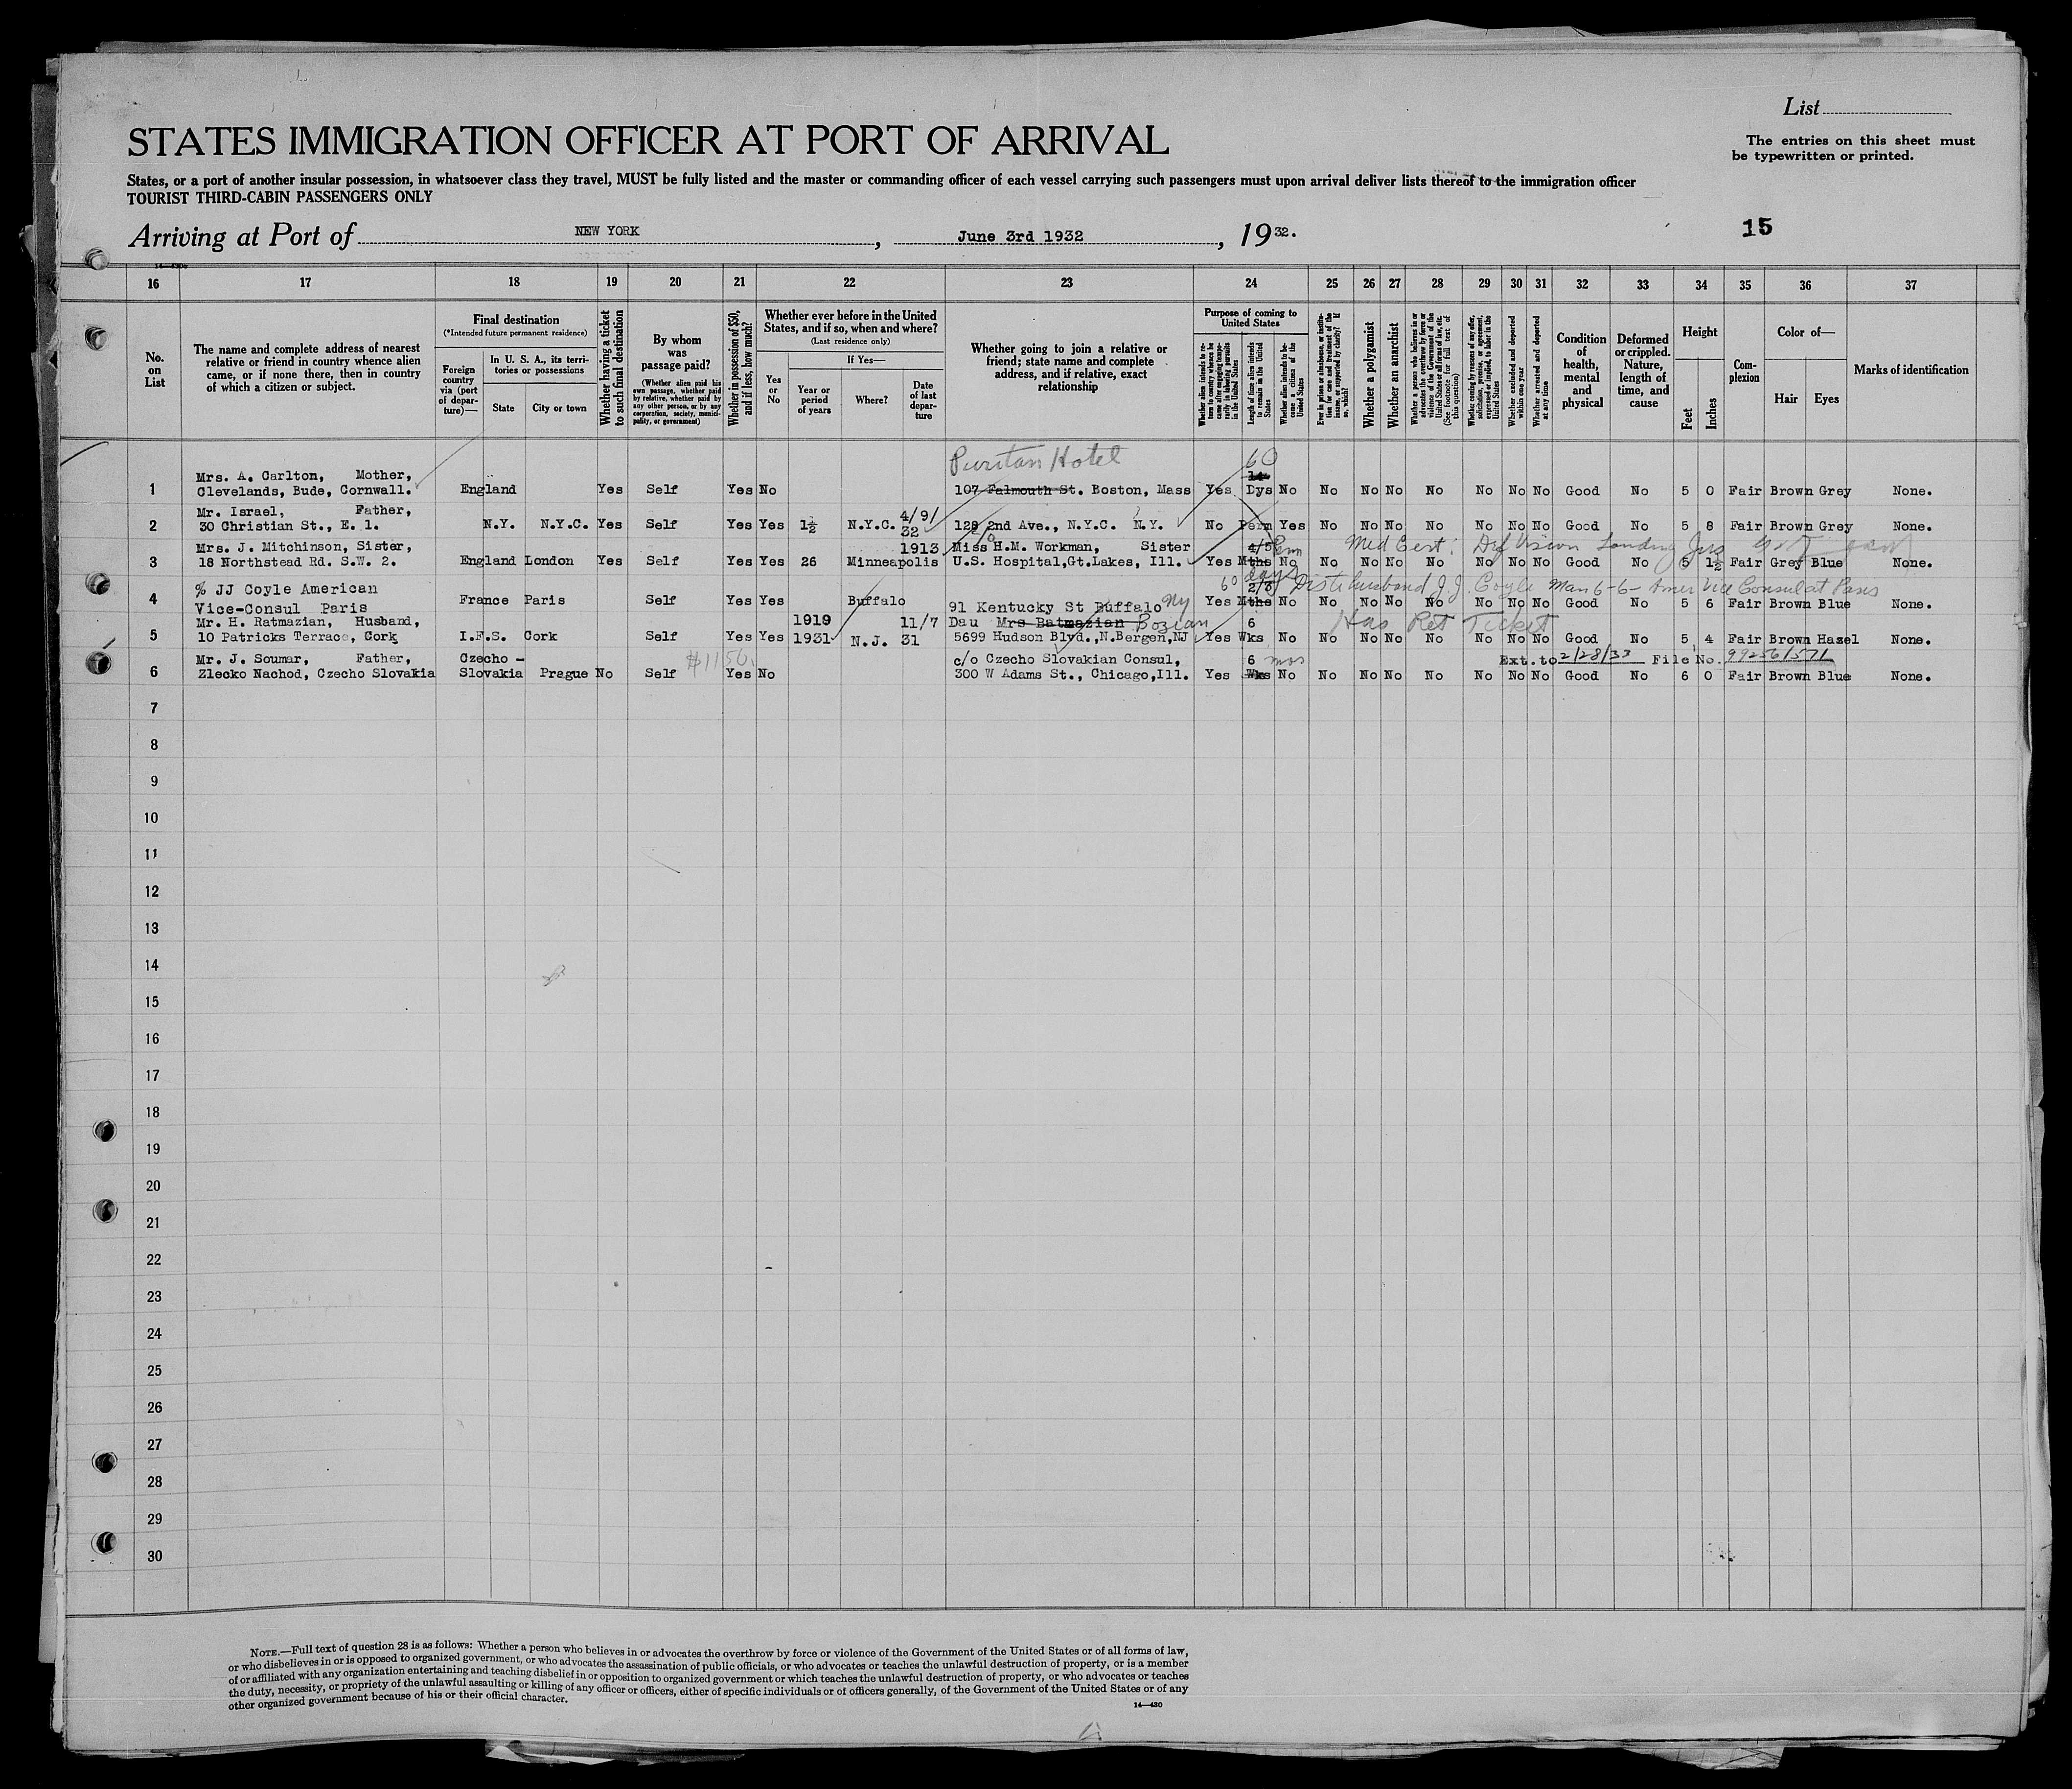 List
STATES IMMIGRATION OFFICER AT PORT OF ARRIVAL
The entries on this sheet must
be typewritten or printed.
States, or a port of another insular possession, in whatsoever class they travel, MUST be fully listed and the master or commanding officer of each vessel carrying such passengers must upon arrival deliver lists thereof to the immigration officer
TOURIST THIRD-CABIN PASSENGERS ONLY
Arriving at Port of NEW YORK, June 3rd 1932, 1932.
15
16 17 18 19 20 21 22 23 24 25 26 27 28 29 30 31 32 33 34 35 36 37
No. on List
The name and complete address of nearest
relative or friend in country whence alien
came, or if none there, then in country
of which a citizen or subject.
Final destination
(*Intended future permanent residence)
Foreign country via (port of departure)—
In U. S. A., its territories or possessions
State
City or town
Whether having a ticket to such final destination
By whom was passage paid?
(Whether alien paid his own passage, whether paid by relative, whether paid by any other person, or by any corporation, society, municipality, or government)
Whether in possession of $50, and if less, how much?
Whether ever before in the United
States, and if so, when and where?
(Last residence only)
Yes or No
If Yes—
Year or period of years
Where?
Date of last departure
Whether going to join a relative or
friend; state name and complete
address, and if relative, exact
relationship
Purpose of coming to United States
Whether alien intends to return to country whence he came after engaging temporarily in laboring pursuits in the United States
Length of time alien intends to remain in the United States
Whether alien intends to become a citizen of the United States
Ever in prison or almshouse, or institution for care and treatment of the insane, or supported by charity? If so, which?
Whether a polygamist
Whether an anarchist
Whether a person who believes in or advocates the overthrow by force or violence of the Government of the United States or all forms of law, etc. (See footnote for full text of this question)
Whether coming by reason of any offer, solicitation, promise, or agreement, expressed or implied, to labor in the United States
Whether excluded and deported within one year
Whether arrested and deported at any time
Condition of health, mental and physical
Deformed or crippled. Nature, length of time, and cause
Height
Feet
Inches
Complexion
Color of—
Hair
Eyes
Marks of identification
Puritan Hotel 60
Mrs. A. Carlton, Mother, 14
1 Clevelands, Bude, Cornwall. England Yes Self Yes No 107 Falmouth St. Boston, Mass Yes Dys No No No No No No No No Good No 5 0 Fair Brown Grey None.
Mr. Israel, Father, 4/9/
2 30 Christian St., E. 1. N.Y. N.Y.C. Yes Self Yes Yes 1½ N.Y.C. 32 128 2nd Ave., N.Y.C. N.Y. No Perm Yes No No No No No No No Good No 5 8 Fair Brown Grey None.
Mrs. J. Mitchinson, Sister, 1913 Miss H.M. Workman, Sister 4/5 Perm Med Cert: Def Vision Landing
3 18 Northstead Rd. S.W. 2. England London Yes Self Yes Yes 26 Minneapolis U.S. Hospital,Gt.Lakes, Ill. Yes Mths No No No No No No No No Good No 5 1½ Fair Grey Blue None.
% JJ Coyle American 60 days 2/3 husband J.J. Coyle Man 6-6- Amer Vice Consul at Paris
4 Vice-Consul Paris France Paris Self Yes Yes Buffalo 91 Kentucky St Buffalo NY Yes Mths No No No No No No No No Good No 5 6 Fair Brown Blue None.
Mr. H. Ratmazian, Husband, 1919 11/7 Dau Mrs Batmazian Bozian 6 Has Ret Ticket
5 10 Patricks Terrace, Cork I.F.S. Cork Self Yes Yes 1931 N.J. 31 5699 Hudson Blvd.,N.Bergen,NJ Yes Wks No No No No No No No No Good No 5 4 Fair Brown Hazel None.
Mr. J. Soumar, Father, Czecho - $1150. c/o Czecho Slovakian Consul, 6 mos Ext. to 2/28/33 File No. 99256/571
6 Zlecko Nachod, Czecho Slovakia Slovakia Prague No Self Yes No 300 W Adams St., Chicago,Ill. Yes Wks No No No No No No No No Good No 6 0 Fair Brown Blue None.
7
8
9
10
11
12
13
14
15
16
17
18
19
20
21
22
23
24
25
26
27
28
29
30
NOTE.—Full text of question 28 is as follows: Whether a person who believes in or advocates the overthrow by force or violence of the Government of the United States or of all forms of law,
or who disbelieves in or is opposed to organized government, or who advocates the assassination of public officials, or who advocates or teaches the unlawful destruction of property, or is a member
of or affiliated with any organization entertaining and teaching disbelief in or opposition to organized government or which teaches the unlawful destruction of property, or who advocates or teaches
the duty, necessity, or propriety of the unlawful assaulting or killing of any officer or officers, either of specific individuals or of officers generally, of the Government of the United States or of any
other organized government because of his or their official character.
14—430